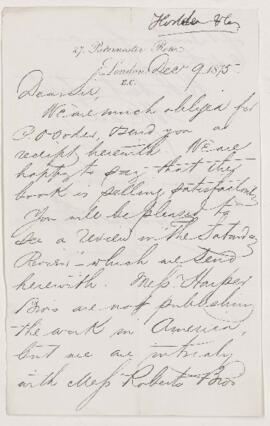 Hodder & Co
27, Paternoster Row
London Dec 9 1875
E.C.
Dear Sir,
We are much obliged for
P.O Order, & send you a
receipt herewith. We are
happy to say that the
book is selling satisfactorily
You will be pleased to
see a Review in the Saturday
Review – which we send
herewith. Messrs Harper
Bros are not publishing
the work in America,
but we are in treaty
with Messrs Roberts Bros